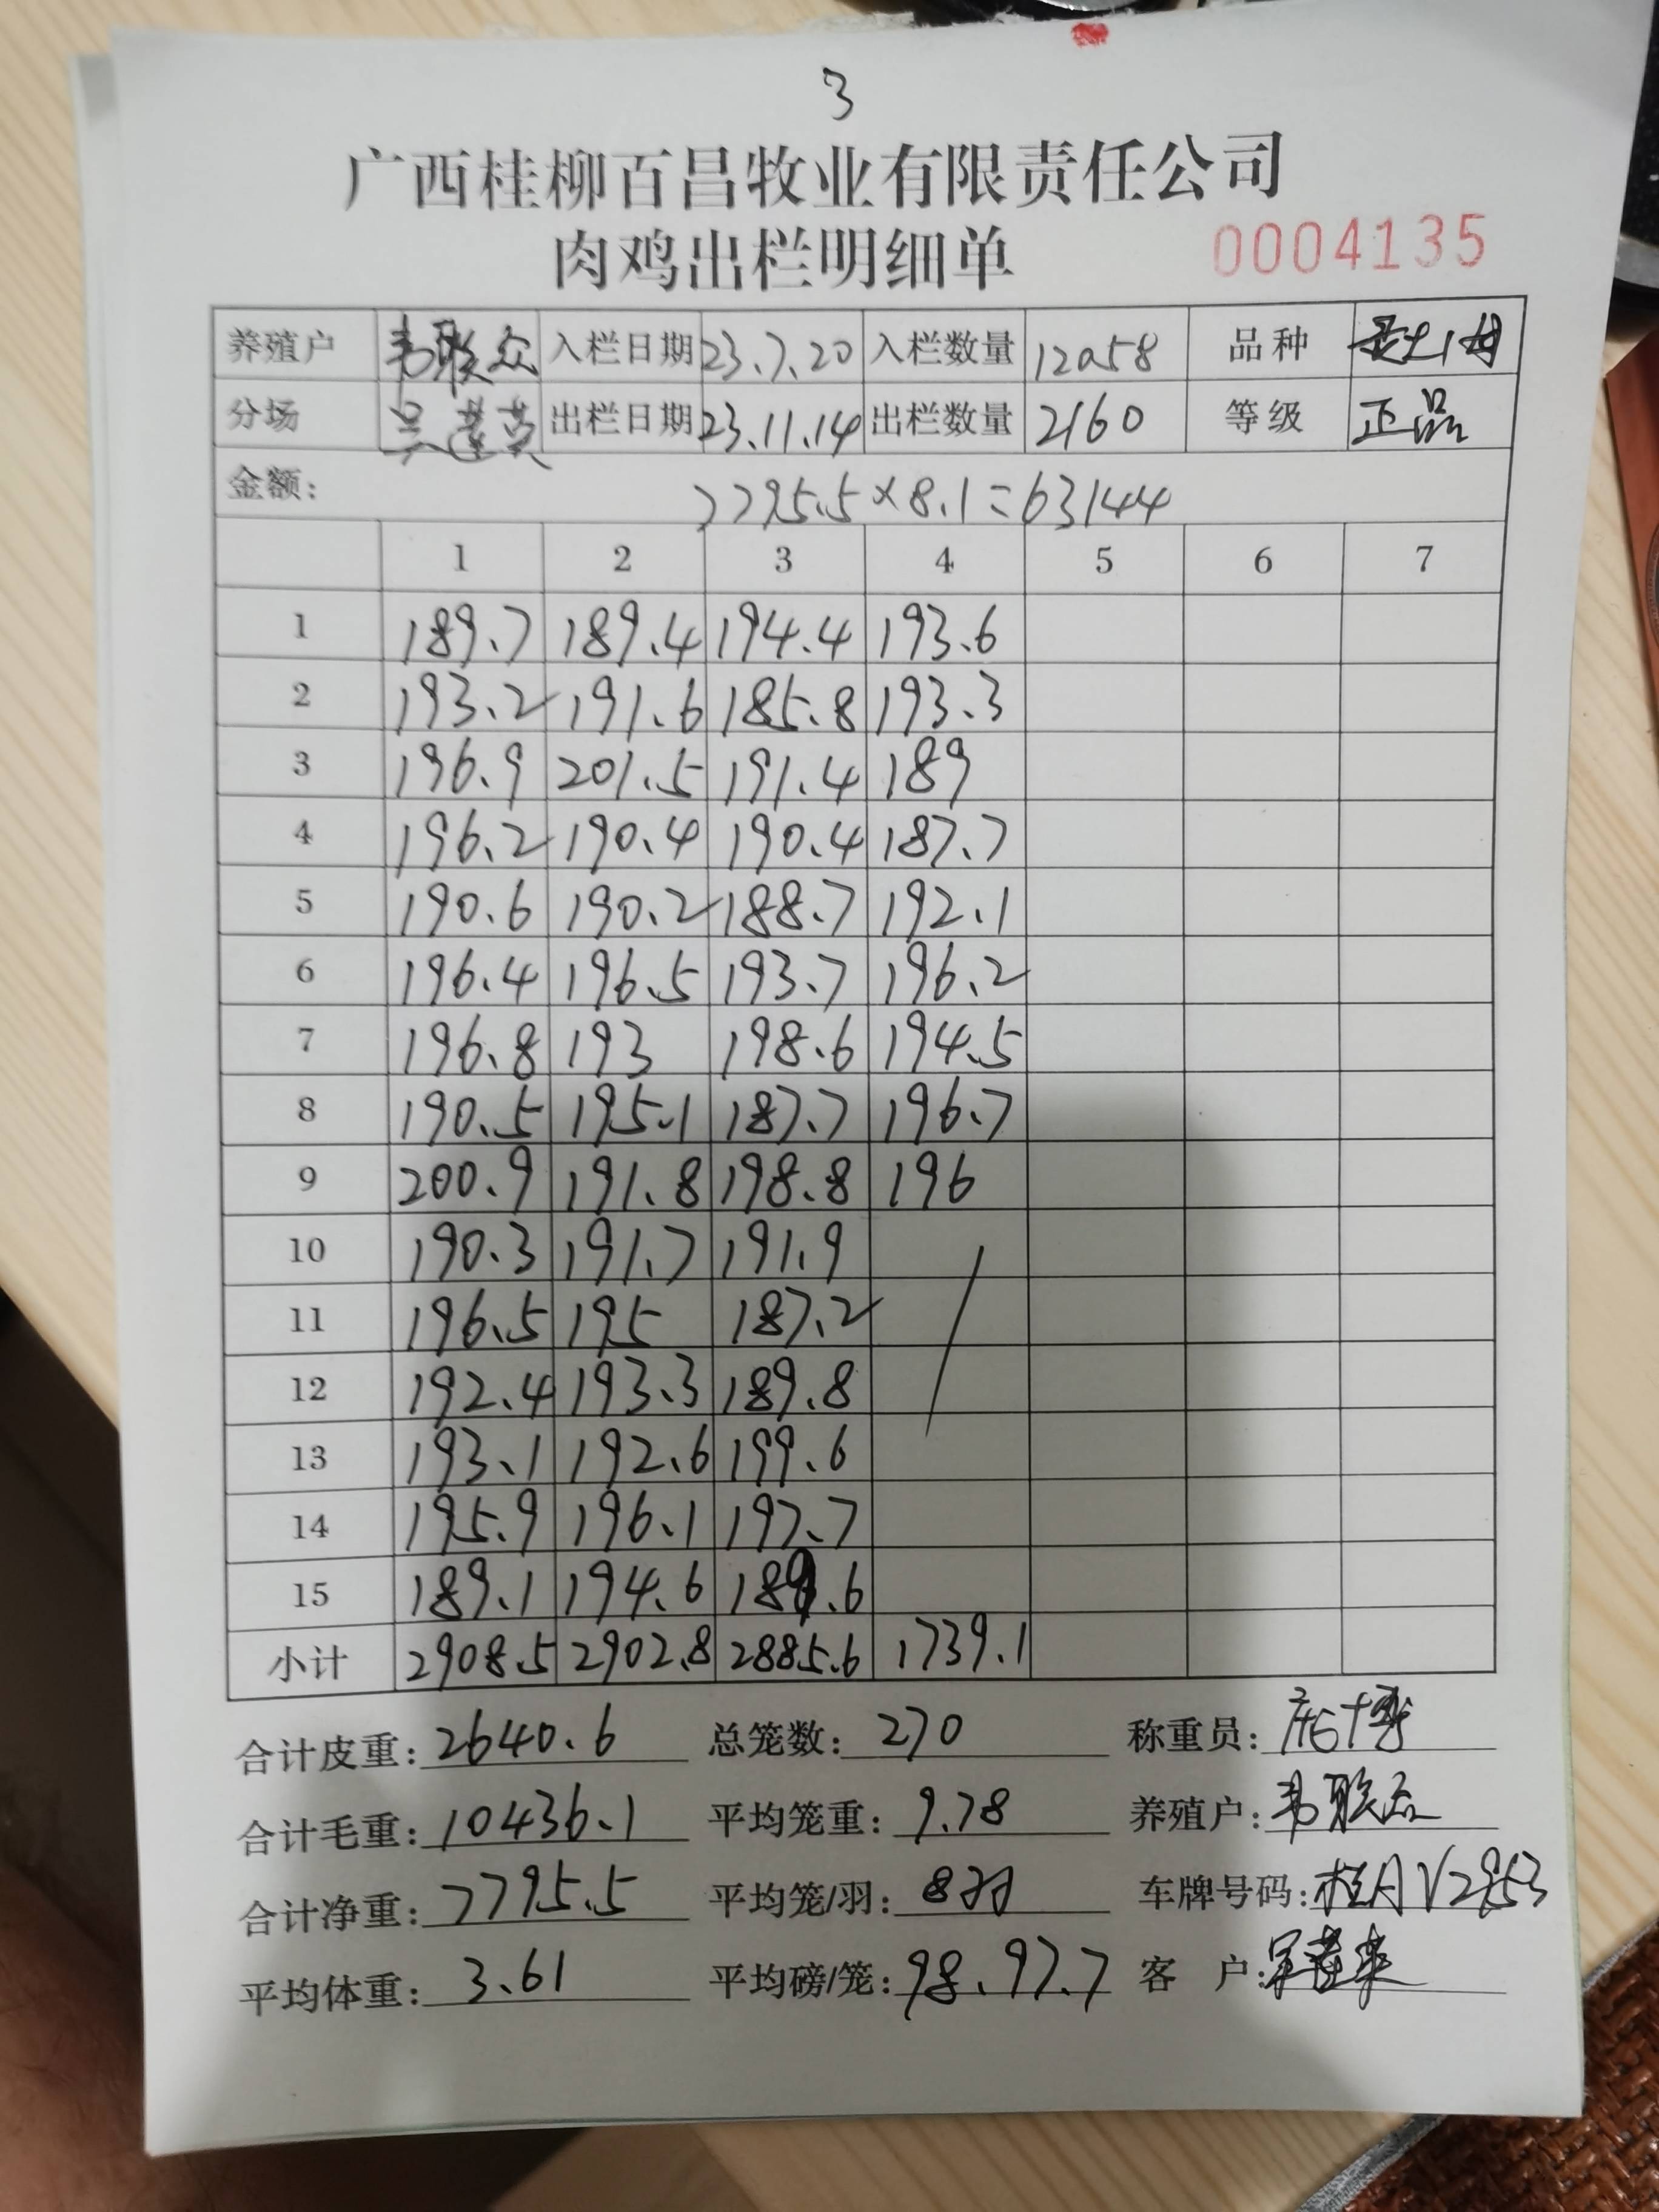 3
广西桂柳百昌牧业有限责任公司
肉鸡出栏明细单 0004135
养殖户 韦联众 入栏日期 23.7.20 入栏数量 12058 品种
分场 出栏日期 23.11.14 出栏数量 2160 等级 正品
金额: 7795.5×8.1=63144
1 2 3 4 5 6 7
1 189.7 189.4 194.4 193.6
2 193.2 191.6 185.8 193.3
3 196.9 201.5 191.4 189
4 196.2 190.4 190.4 187.7
5 190.6 190.2 188.7 192.1
6 196.4 196.5 193.7 196.2
7 196.8 193 198.6 194.5
8 190.5 195.1 187.7 196.7
9 200.9 191.8 198.8 196
10 190.3 191.7 191.9
11 196.5 195 187.2
12 192.4 193.3 189.8
13 193.1 192.6 199.6
14 195.9 196.1 197.7
15 189.1 194.6 189.6
小计 2908.5 2902.8 2885.6 1739.1
合计皮重: 2640.6 总笼数: 270 称重员:
合计毛重: 10436.1 平均笼重: 9.78 养殖户: 韦联众
合计净重: 7795.5 平均笼/羽: 8羽 车牌号码:
平均体重: 3.61 平均磅/笼: 98.97.7 客 户: